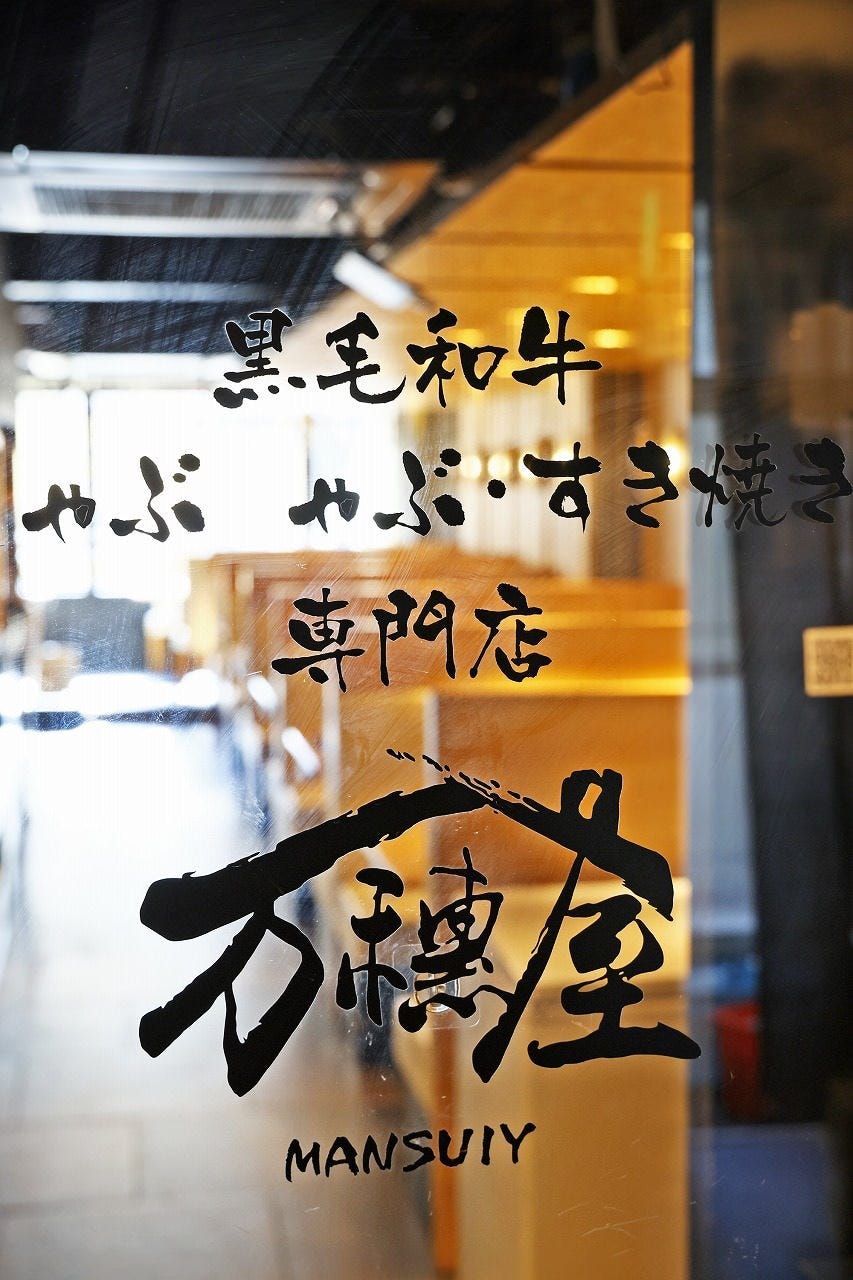 黒毛和牛
ゃぶ ゃぶ・すき焼き
専門店
万穗屋
MANSUIY